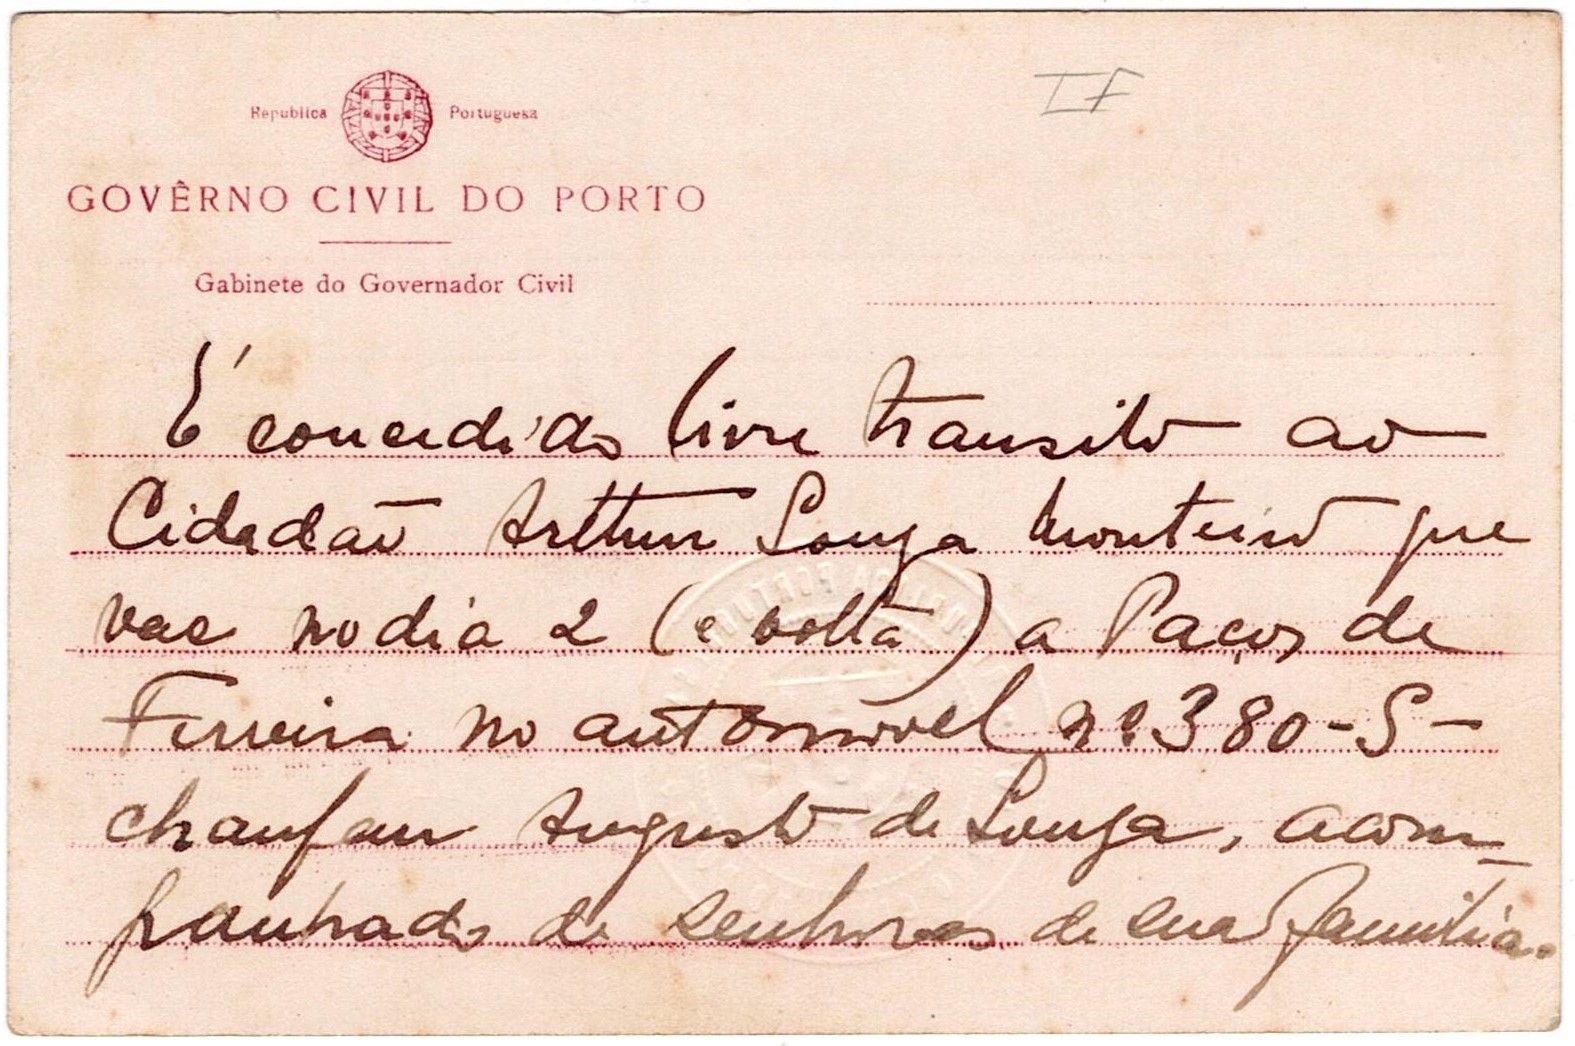 Republica Portuguesa
GOVÊRNO CIVIL DO PORTO
Gabinete do Governador Civil
É concedido livre transito ao
Cidadão Arthur Souza Monteiro que
vae no dia 2 (e volta) a Paços de
Ferreira no automovel nº 380-S-
chaufeur Augusto de Souza, acom-
panhado de senhoras de sua familia.